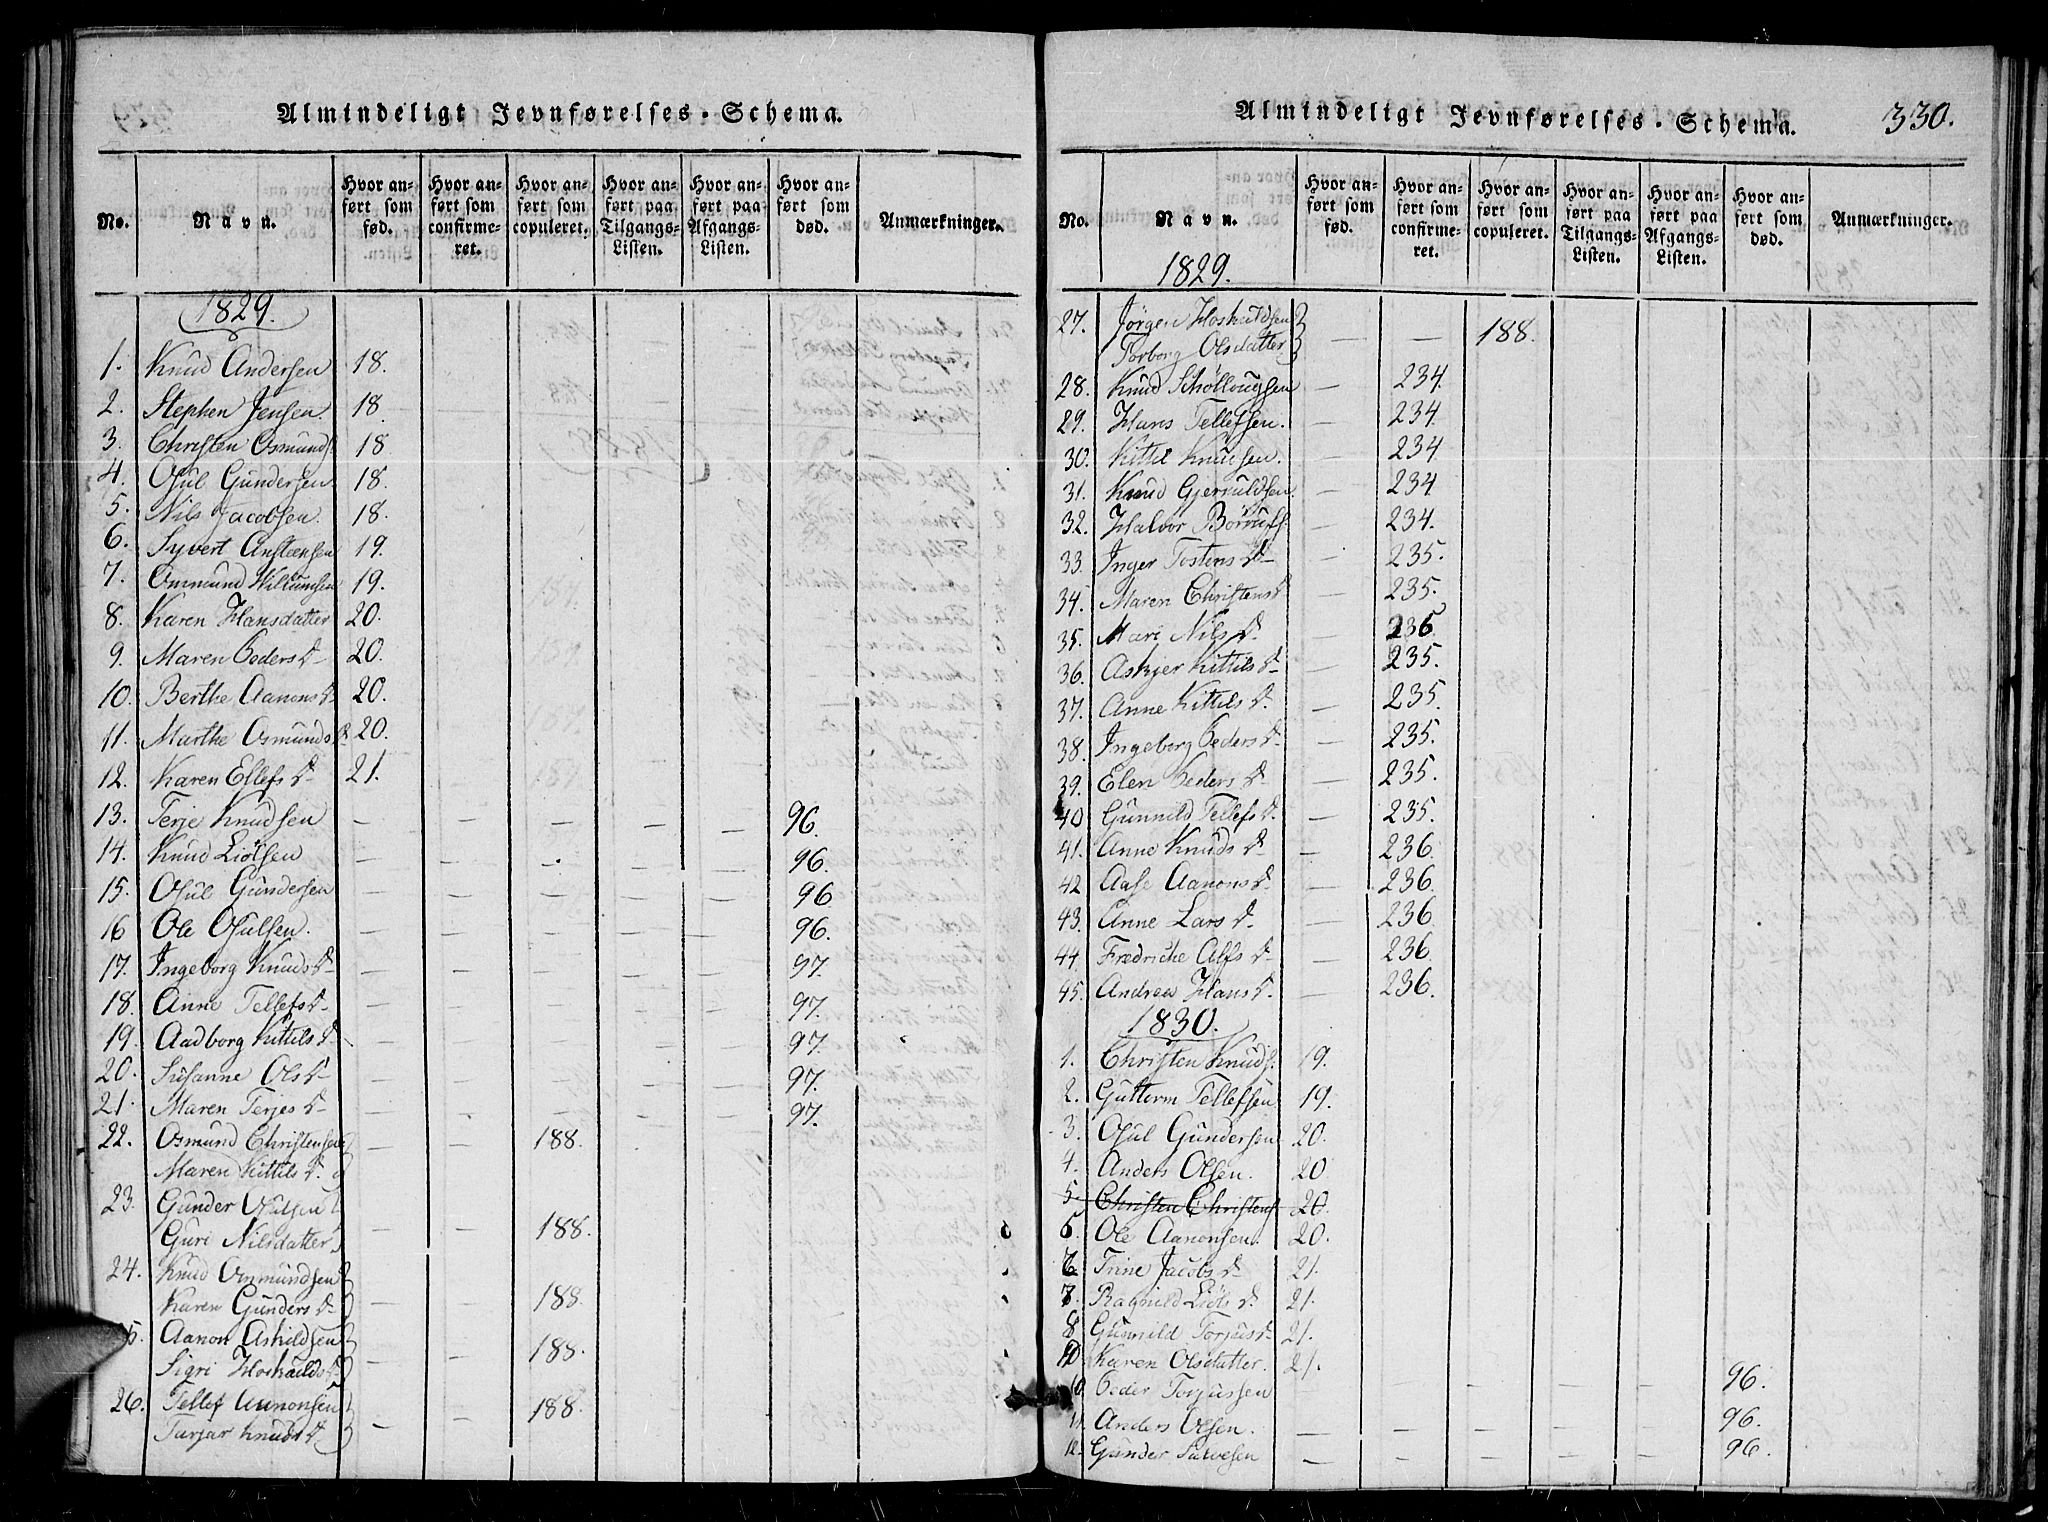 Almindeligt Jevnførelses-Schema.
No. Navn. Hvor anført som fød. Hvor anført som confirmeret. Hvor anført som copuleret. Hvor anført paa Tilgangs-Listen. Hvor anført paa Afgangs-Listen. Hvor anført som død. Anmærkninger.
1829.
1. Knud Andersen 18.
2. Stephen Jensen. 18.
3. Christen Osmunds. 18
4. Osul Gundersen 18.
5. Nils Jacobsen. 18.
6. Syvert Ansteensen 19.
7. Ommund Willumsen 19.
8. Karen Hansdatter 20.
9. Maren Peders D. 20.
10. Berthe Aanons D. 20.
11. Marthe Osmunds D. 20.
12. Karen Ellefs D. 21.
13. Terje Knudsen — — — — — 96.
14. Knud Liötsen — — — — 96.
15. Osul Gundersen — — — — — 96
16 Ole Osulsen. — — — — — 96.
17. Ingeborg Knuds D. — — — — — 97.
18. Anne Tellefs D. — — — — — 97.
19. Aadborg Kittils D. — — — — — 97.
20. Susanne Ols D. — — — — — 97.
21. Maren Terjes D. — — — — — 97.
22. Osmund Christensen — — 188.
Maren Kittils D.
23. Gunder Osulsen
Guri Nilsdatter — — 188.
24. Knud Ommundsen
Karen Gunders D. — — 188.
25. Aanon Askildsen
Sigri Hoskulds D. — — 188.
26. Tellef Aanonsen — — 188.
Tarjar Knuds D.
Almindeligt Jevnførelses-Schema. 330.
No. Navn. Hvor anført som fød. Hvor anført som confirmeret. Hvor anført som copuleret. Hvor anført paa Tilgangs-Listen. Hvor anført paa Afgangs-Listen. Hvor anført som død. Anmærkninger.
1829.
27. Jörgen Hoskuldsen
Torborg Olsdatter — — 188.
28. Knud Schöllougsen — 234.
29. Hans Tellefsen. — 234.
30. Kittil Knudsen. — 234
31. Knud Gjeruldsen. — 234
32. Halvor Börrufs. — 234.
33. Inger Tostens D. — 235.
34. Maren Christens D. — 235.
35. Mari Nils D. — 235
36. Askjer Kittils D. — 235.
37. Anne Kittils D. — 235.
38. Ingeborg Peders D. — 235.
39. Elen Peders D. — 235.
40 Gunnild Tellefs D. — 235.
41. Anne Knuds D. — 236.
42 Aase Aanons D. — 236.
43. Anne Lars D. — 236
44. Fredriche Alfs D. — 236.
45. Andrea Hans D. — 236.
1830.
1. Christen Knuds. 19.
2. Guttorm Tellefsen 19.
3. Osul Gundersen 20.
4. Anders Olsen. 20
5. Christen Christens 20.
5. Ole Aanonsen. 20.
6 Trine Jacobs D. 21.
7. Ragnild Liöts D. 21.
8 Gunnild Torjus D. 21.
9. Karen Olsdatter. 21.
10. Peder Torjussen — — — — — 96.
11. Anders Olsen. — — — — — 96.
12. Gunder Salvesen — — — — — 96.